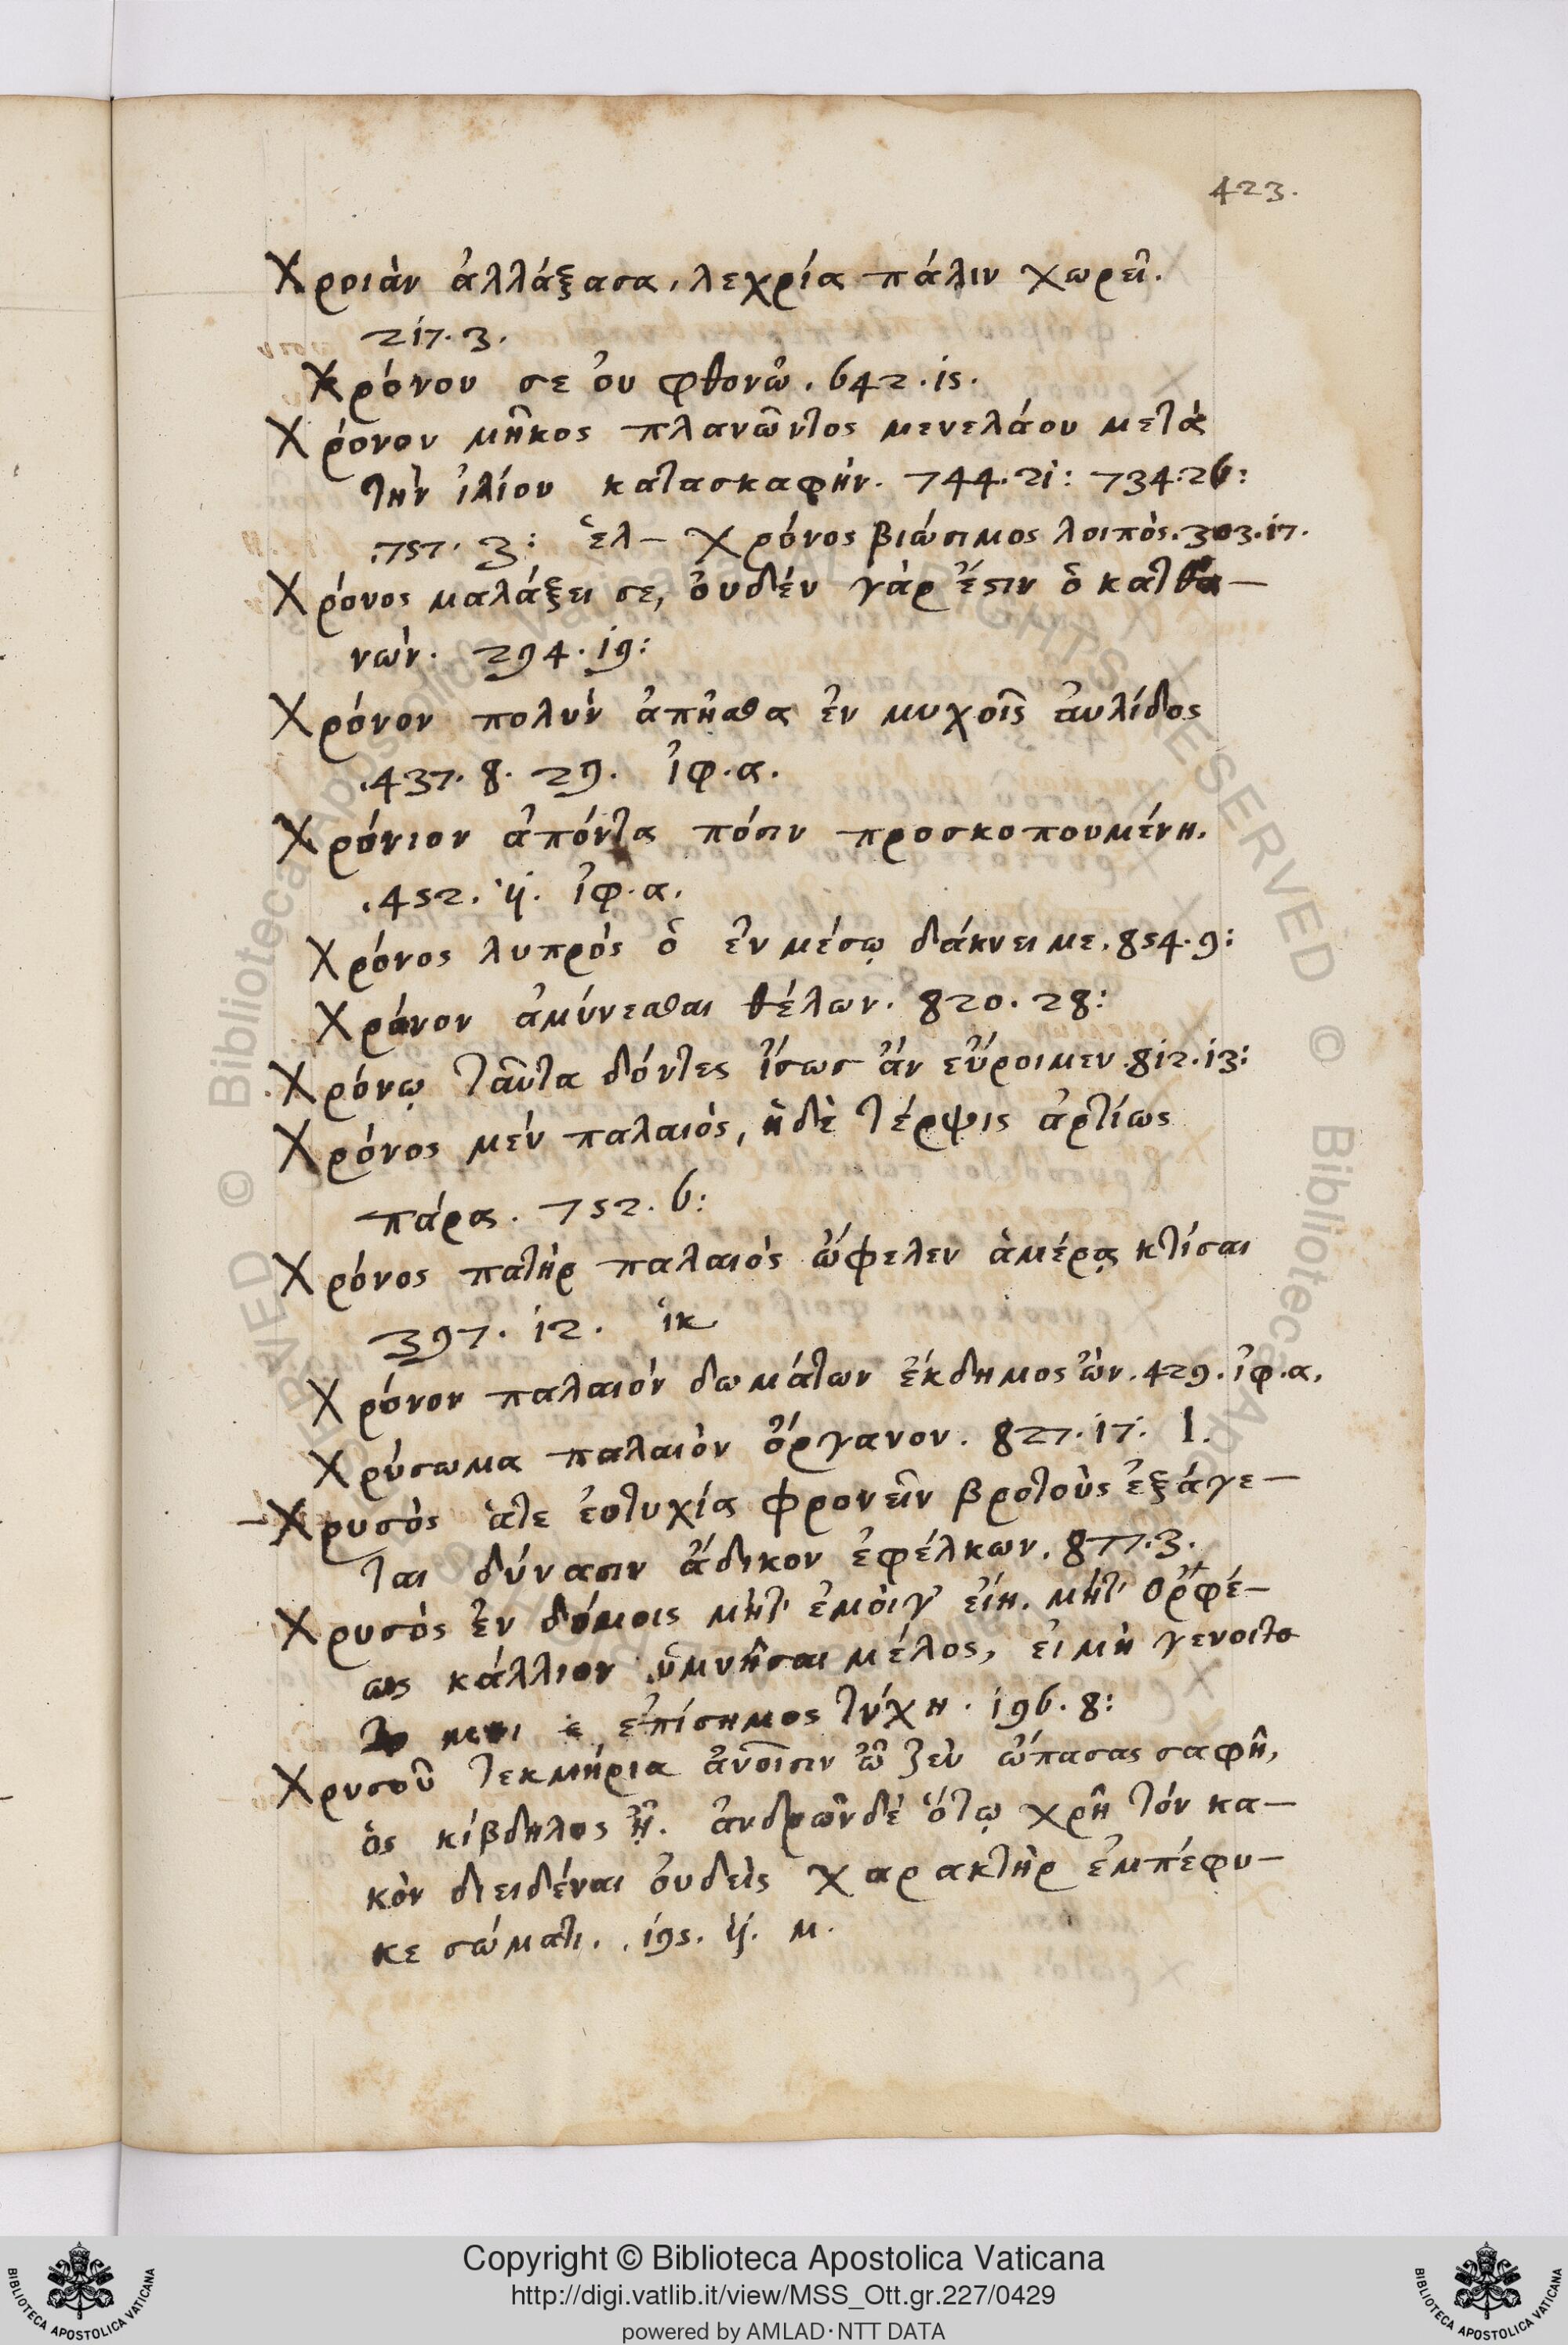 423.
Χροιὰν ἀλλάξασα, λεχρία πάλιν χωρεῖ.
217. 3.
Χρόνου σε ὀυ φθονῶ. 642. 15.
Χρόνον μῆκος πλανῶντος μενελάου μετὰ
τὴν ἰλίου κατασκαφήν. 744. 21: 734. 26:
.757. 3: ἑλ— Χρόνος βιώσιμος λοιπὸς. 303. 17.
Χρόνος μαλάξει σε, ὀυδέν γὰρ ἔϛιν ὁ κατθα—
νὼν. 294. 19:
Χρόνον πολὺν ἀπῆσθα ἐν μυχοῖς ἀυλίδος
.437. 8. 29. ἰφ. α.
Χρόνιον ἀπόντα πόσιν προσκοπουμένη.
.452. ιj. ἰφ. α.
Χρόνος λυπρὸς ὁ ἐν μέσῳ δάκνει με. 854. 9:
Χρόνον ἀμύνεσθαι θέλων. 820. 28:
Χρόνῳ ταῦτα δόντες ἴσως ἂν εὕροιμεν. 812. 13:
Χρόνος μέν παλαιὸς, ἡ δὲ τέρψις ἀρτίως
πάρα. 752. 6:
Χρόνος πατὴρ παλαιὸς ὤφελεν ἁμέρᾳ κτίσαι
397. 12. ἱκ
Χρόνον παλαιὸν δωμάτων ἔκδημος ὢν. 429. ἰφ. α.
Χρύσωμα παλαιὸν ὄργανον. 827. 17. Ι.
—Χρυσὸς ἅτε ἐυτυχία φρονεῖν βροτοὺς ἐξάγε—
ται δύνασιν ἄδικον ἐφέλκων. 877. 3.
Χρυσὸς ἐν δόμοις μήτ' ἐμοὶγ' εἴη. μήτ' ὀρφέ—
ως κάλλιον ὑμνῆσαι μέλος, ει μὴ γενοιτο
ἐπίσημος τύχη. 196. 8:
Χρυσοῦ τεκμήρια ἀνοῖσιν ὦ ζεὺ ὤπασας σαφῆ,
ὃς κίβδηλος ᾖ. ἀνδρῶν δὲ ὅτῳ χρῆ τόν κα—
κὸν διειδέναι ὀυδεὶς χαρακτὴρ ἐμπέφυ—
κε σώματι. .195. ιj. μ.
Copyright © Biblioteca Apostolica Vaticana
http://digi.vatlib.it/view/MSS_Ott.gr.227/0429
powered by AMLAD·NTT DATA